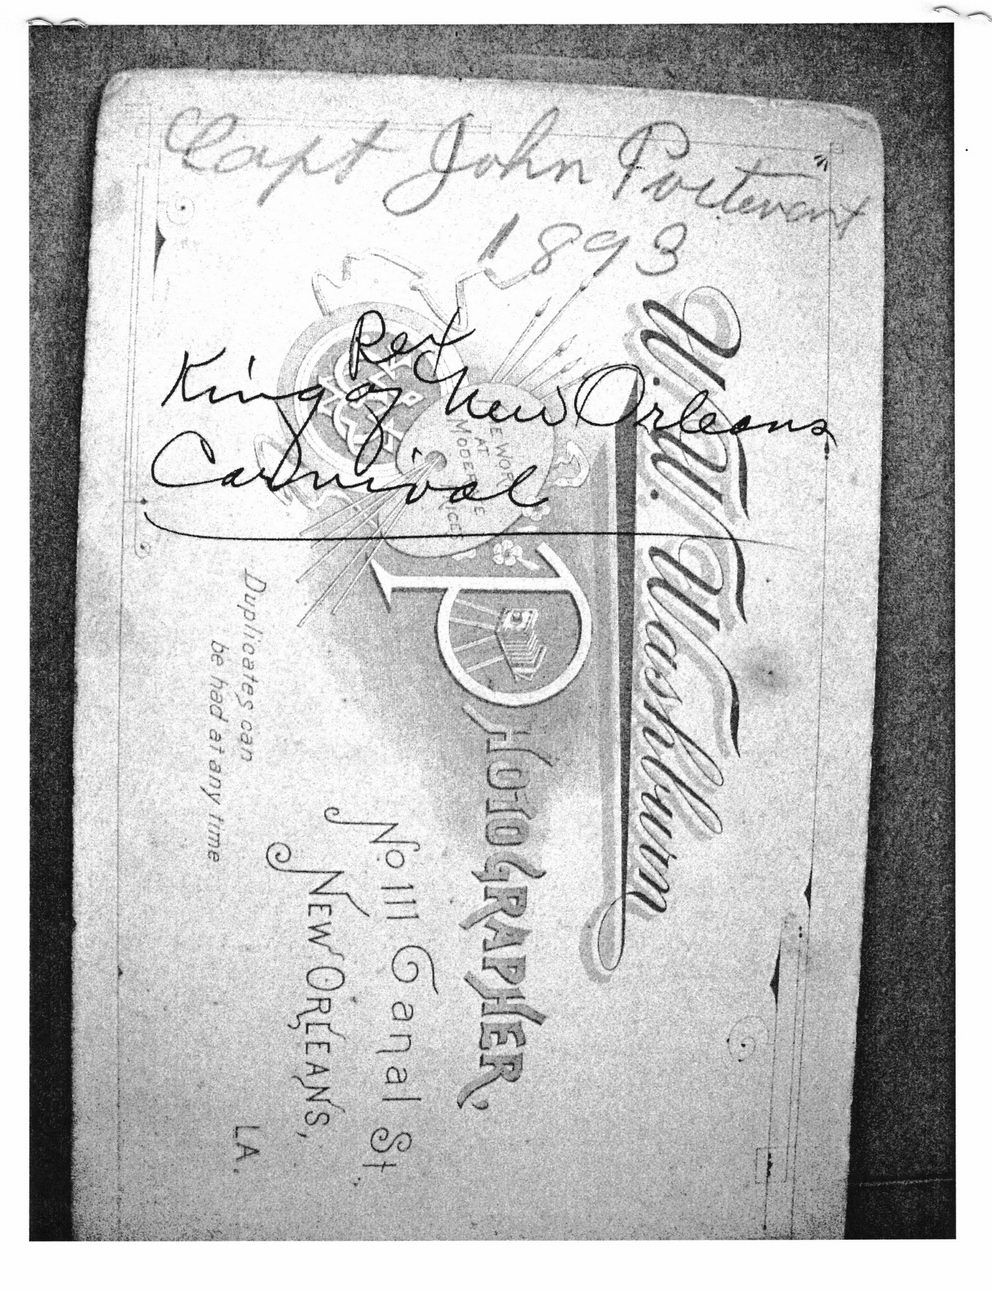 Capt John Poitevent
1893
Rex
King of New Orleans
Carnival
W. W. Washburn
PHOTOGRAPHER,
No 111 Canal St
NEW ORLEANS,
LA.
Duplicates can
be had at any time
AT
MODER